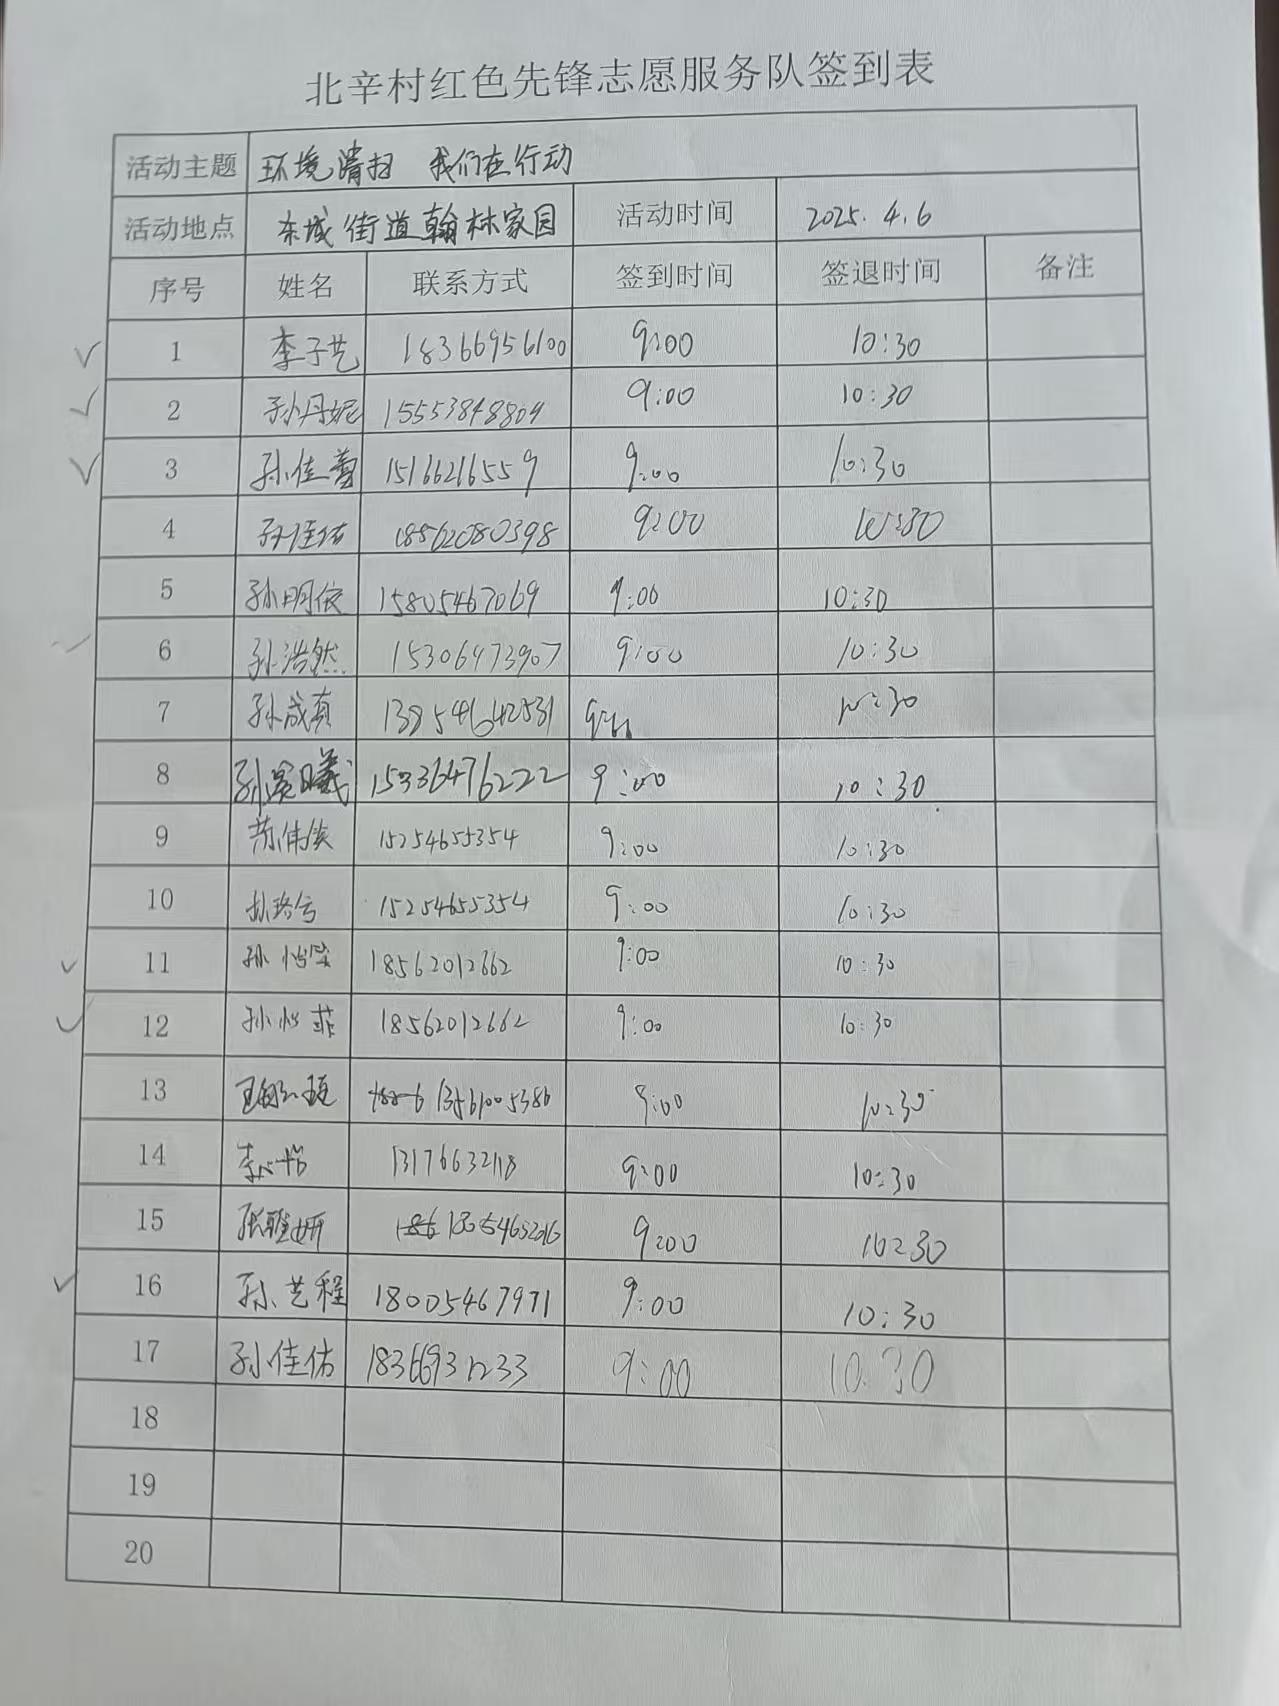 北辛村红色先锋志愿服务队签到表
活动主题 环境清扫 我们在行动
活动地点 东城街道翰林家园 活动时间 2025.4.6
序号 姓名 联系方式 签到时间 签退时间 备注
1 李子艺 18366956100 9:00 10:30
2 孙丹妮 15553848804 9:00 10:30
3 孙佳蕾 15166216559 9:00 10:30
4 18562080398 9:00 10:30
5 孙明依 15805467069 9:00 10:30
6 孙浩然 15306473907 9:00 10:30
7 孙成真 13854642531 10:30
8 15336476222 9:00 10:30
9 15254655354 9:00 10:30
10 15254655354 9:00 10:30
11 18562012662 9:00 10:30
12 孙怡菲 18562012662 9:00 10:30
13 13561005386 9:00 10:30
14 13176632118 9:00 10:30
15 9:00 10:30
16 孙艺程 18005467971 9:00 10:30
17 孙佳佑 18366931233 9:00 10:30
18
19
20